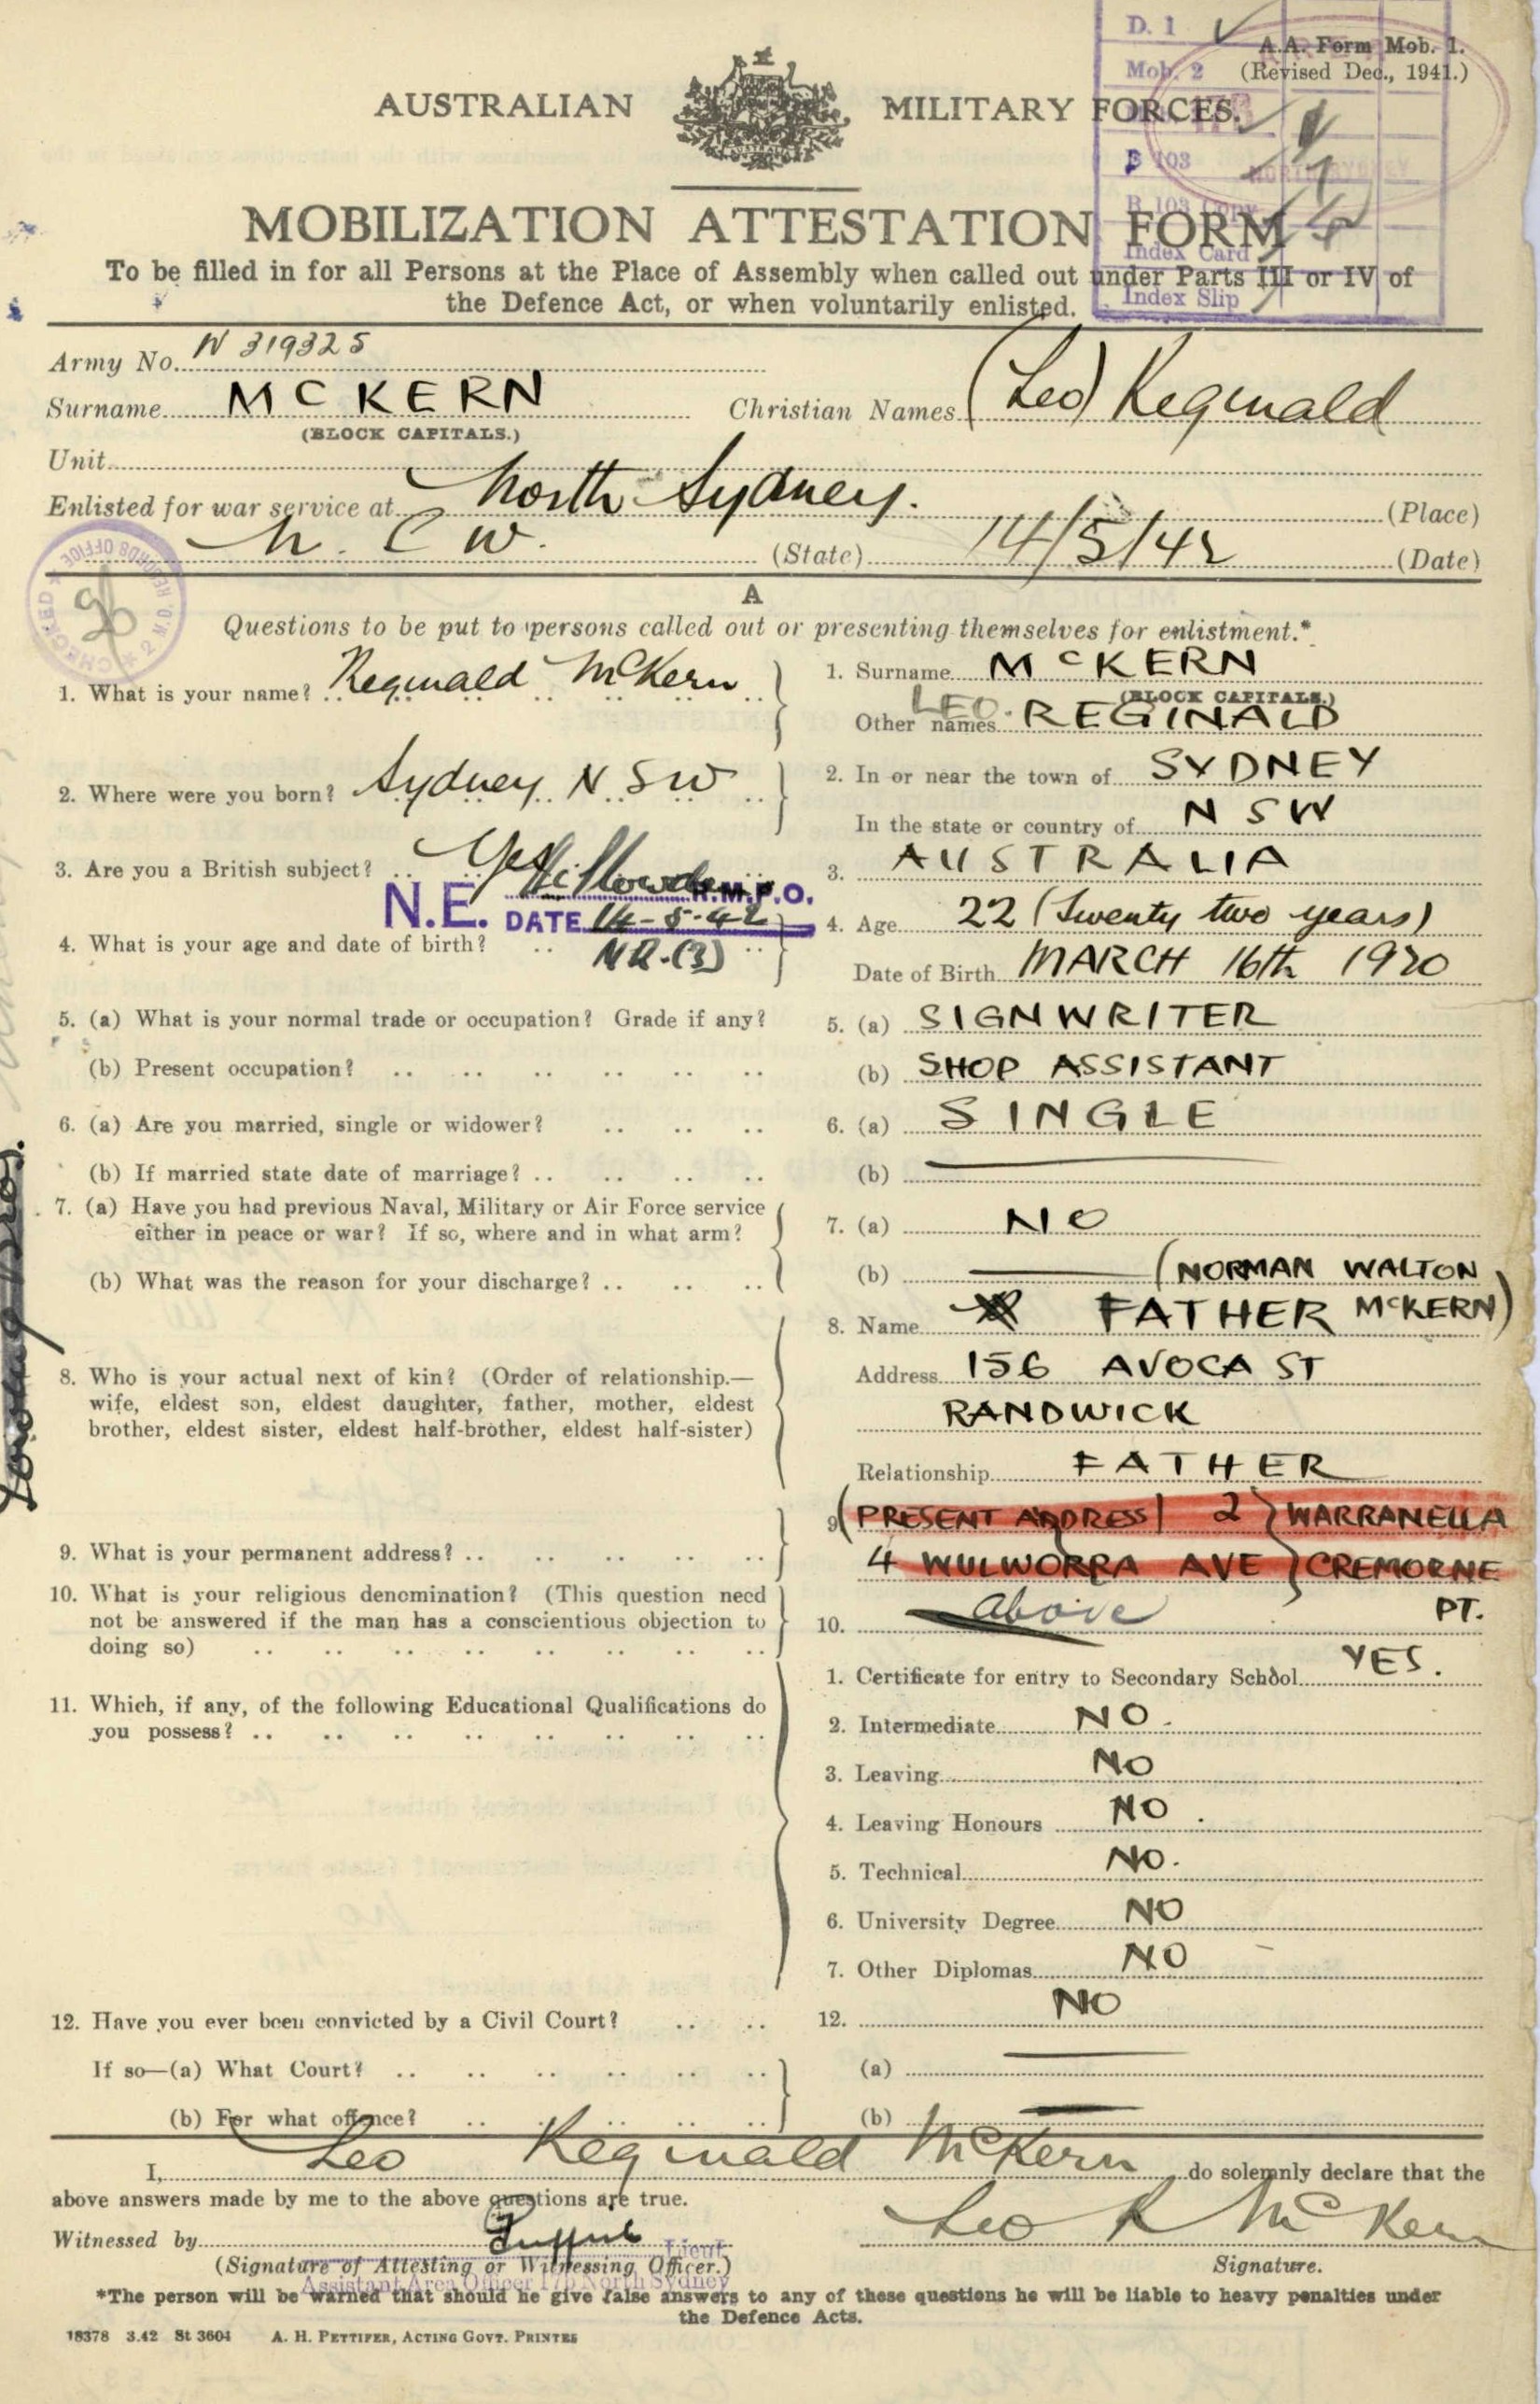 D. 1
A.A. Form Mob. 1.
Mob. 2 (Revised Dec., 1941.)
AUSTRALIAN MILITARY FORCES.
B 103
B 103 Copy
MOBILIZATION ATTESTATION FORM
Index Card
To be filled in for all Persons at the Place of Assembly when called out under Parts III or IV of
the Defence Act, or when voluntarily enlisted.
Index Slip
Army No. N 319325
Surname MCKERN Christian Names (Leo) Reginald
(BLOCK CAPITALS.)
Unit
Enlisted for war service at North Sydney. (Place)
(State) 14/5/42 (Date)
A
Questions to be put to persons called out or presenting themselves for enlistment.*
1. What is your name? Reginald McKern
1. Surname McKERN
(BLOCK CAPITALS.)
LEO.
Other names REGINALD
2. Where were you born? Sydney N SW
2. In or near the town of SYDNEY
In the state or country of N S W
3. Are you a British subject? Yes
3. AUSTRALIA
N.E. DATE 14-5-42
4. What is your age and date of birth?
4. Age 22 (Twenty two years)
Date of Birth MARCH 16th 1920
5. (a) What is your normal trade or occupation? Grade if any?
5. (a) SIGNWRITER
(b) Present occupation?
(b) SHOP ASSISTANT
6. (a) Are you married, single or widower?
6. (a) SINGLE
(b) If married state date of marriage?
(b)
7. (a) Have you had previous Naval, Military or Air Force service
either in peace or war? If so, where and in what arm?
7. (a) NO
(b) What was the reason for your discharge?
(b) (NORMAN WALTON
8. Name FATHER McKERN)
8. Who is your actual next of kin? (Order of relationship.—
wife, eldest son, eldest daughter, father, mother, eldest
brother, eldest sister, eldest half-brother, eldest half-sister)
Address 156 AVOCA ST
RANDWICK
Relationship FATHER
9. What is your permanent address?
9 (PRESENT ADDRESS) 2 } WARRANELLA
4 WULWORRA AVE } CREMORNE
PT.
10. What is your religious denomination? (This question need
not be answered if the man has a conscientious objection to
doing so)
10. above
11. Which, if any, of the following Educational Qualifications do
you possess?
1. Certificate for entry to Secondary School YES.
2. Intermediate NO.
3. Leaving NO
4. Leaving Honours NO.
5. Technical NO.
6. University Degree NO
7. Other Diplomas NO
12. Have you ever been convicted by a Civil Court?
12. NO
If so—(a) What Court?
(a)
(b) For what offence?
(b)
I, Leo Reginald McKern do solemnly declare that the
above answers made by me to the above questions are true.
Leo R McKern
Witnessed by
Lieut.
(Signature of Attesting or Witnessing Officer.) Signature.
Assistant Area Officer 17b North Sydney
*The person will be warned that should he give false answers to any of these questions he will be liable to heavy penalties under
the Defence Acts.
18378 3.42 St 3604 A. H. PETTIFER, ACTING GOVT. PRINTER